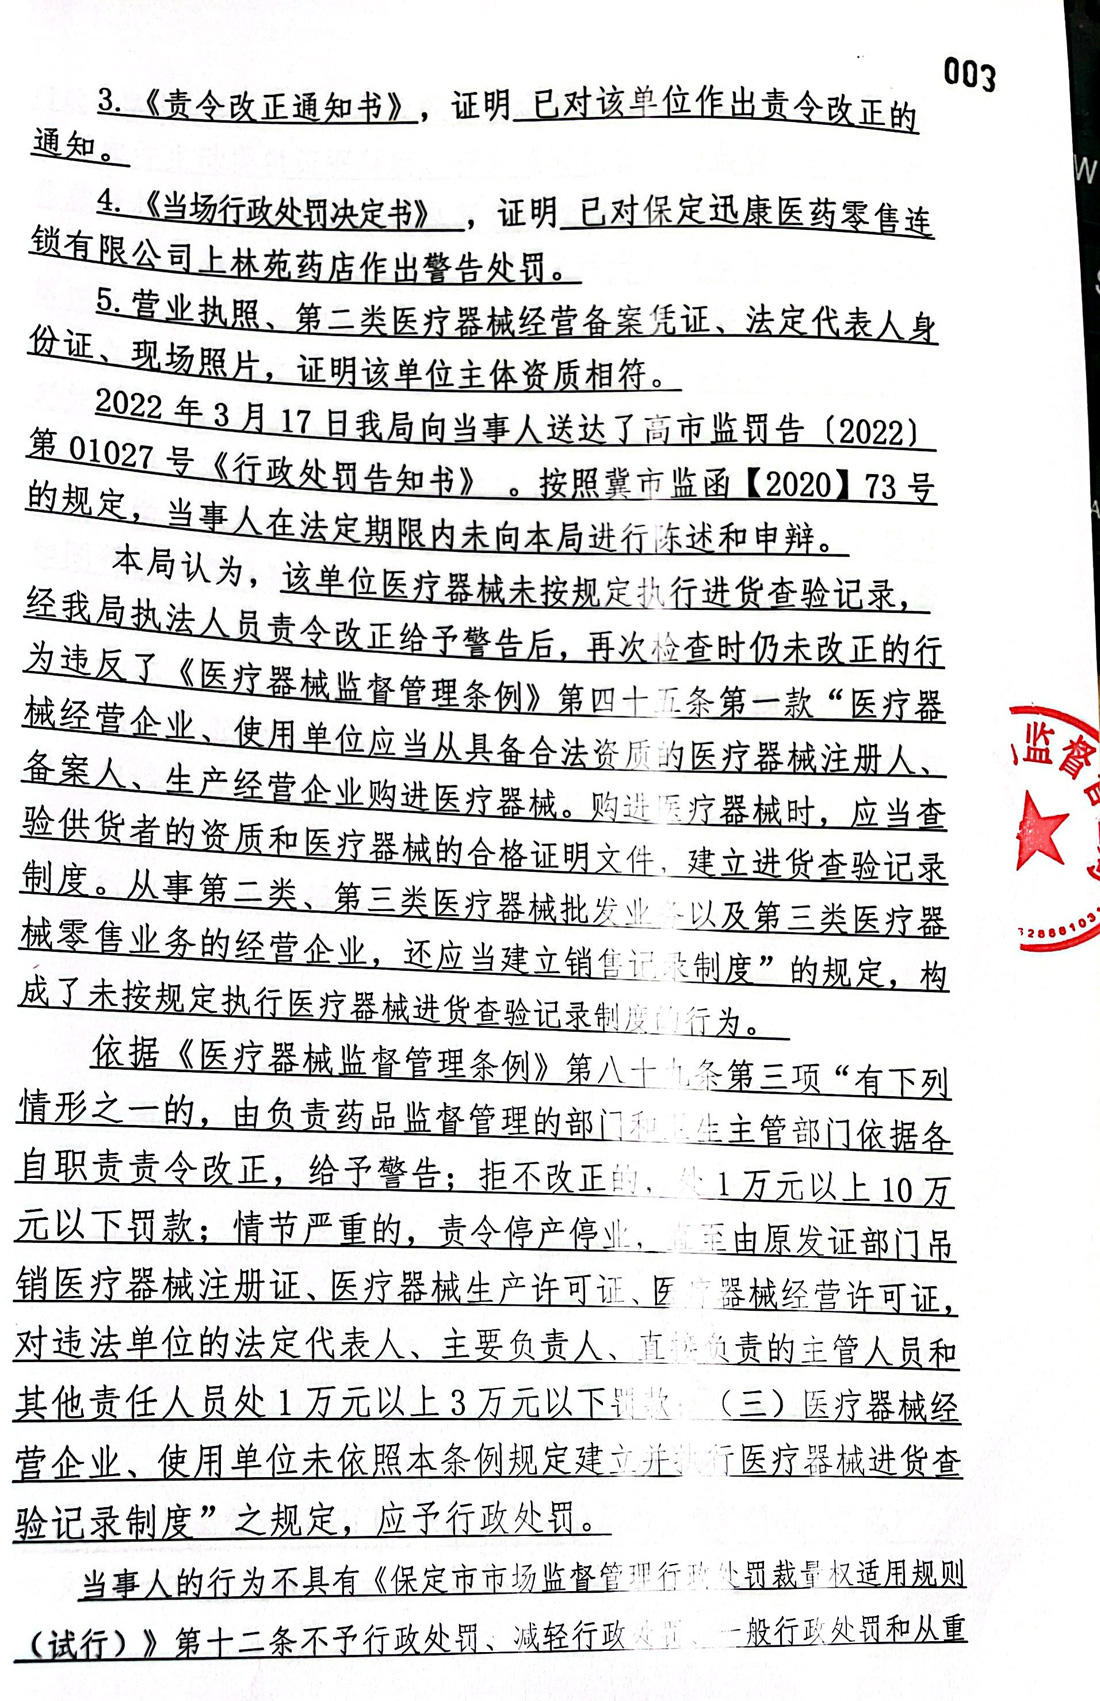 003
3.《责令改正通知书》，证明 已对该单位作出责令改正的
通知。
4.《当场行政处罚决定书》 ，证明 已对保定迅康医药零售连
锁有限公司上林苑药店作出警告处罚。
5.营业执照、第二类医疗器械经营备案凭证、法定代表人身
份证、现场照片，证明该单位主体资质相符。
2022年3月17日我局向当事人送达了高市监罚告〔2022〕
第01027号《行政处罚告知书》 。按照冀市监函【2020】73号
的规定，当事人在法定期限内未向本局进行陈述和申辩。
本局认为，该单位医疗器械未按规定执行进货查验记录，
经我局执法人员责令改正给予警告后，再次检查时仍未改正的行
为违反了《医疗器械监督管理条例》第四十五条第一款“医疗器
械经营企业、使用单位应当从具备合法资质的医疗器械注册人、
备案人、生产经营企业购进医疗器械。购进医疗器械时，应当查
验供货者的资质和医疗器械的合格证明文件，建立进货查验记录
制度。从事第二类、第三类医疗器械批发业务以及第三类医疗器
械零售业务的经营企业，还应当建立销售记录制度”的规定，构
成了未按规定执行医疗器械进货查验记录制度的行为。
依据《医疗器械监督管理条例》第八十九条第三项“有下列
情形之一的，由负责药品监督管理的部门和卫生主管部门依据各
自职责责令改正，给予警告；拒不改正的，处1万元以上10万
元以下罚款；情节严重的，责令停产停业，直至由原发证部门吊
销医疗器械注册证、医疗器械生产许可证、医疗器械经营许可证，
对违法单位的法定代表人、主要负责人、直接负责的主管人员和
其他责任人员处1万元以上3万元以下罚款：（三）医疗器械经
营企业、使用单位未依照本条例规定建立并执行医疗器械进货查
验记录制度”之规定，应予行政处罚。
当事人的行为不具有《保定市市场监督管理行政处罚裁量权适用规则
（试行）》第十二条不予行政处罚、减轻行政处罚、一般行政处罚和从重
监督